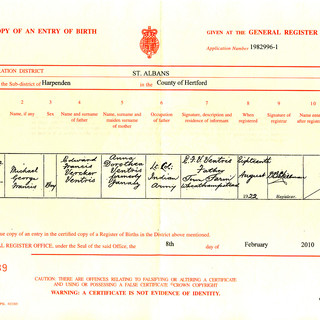 OPY OF AN ENTRY OF BIRTH
GIVEN AT THE GENERAL REGISTER
Application Number 1982996-1
RATION DISTRICT
ST. ALBANS
the Sub-district of Harpenden in the County of Hertford
2 3 4 5 6 7 8 9 10
Name, if any
Sex
Name and surname of father
Name, surname and maiden surname of mother
Occupation of father
Signature, description and residence of informant
When registered
Signature of registrar
Name entered after registration
Michael George Francis
Boy
Edward Francis Vereker Ventris
Anna Dorothea Ventris formerly Janasz
Lt Col: Indian Army
E.F.V. Ventris
Father
Wheathampstead
Fifteenth August 1922
Registrar.
ue copy of an entry in the certified copy of a Register of Births in the District above mentioned.
RAL REGISTER OFFICE, under the Seal of the said Office, the 8th day of February 2010
39
CAUTION: THERE ARE OFFENCES RELATING TO FALSIFYING OR ALTERING A CERTIFICATE
AND USING OR POSSESSING A FALSE CERTIFICATE ©CROWN COPYRIGHT
WARNING: A CERTIFICATE IS NOT EVIDENCE OF IDENTITY.